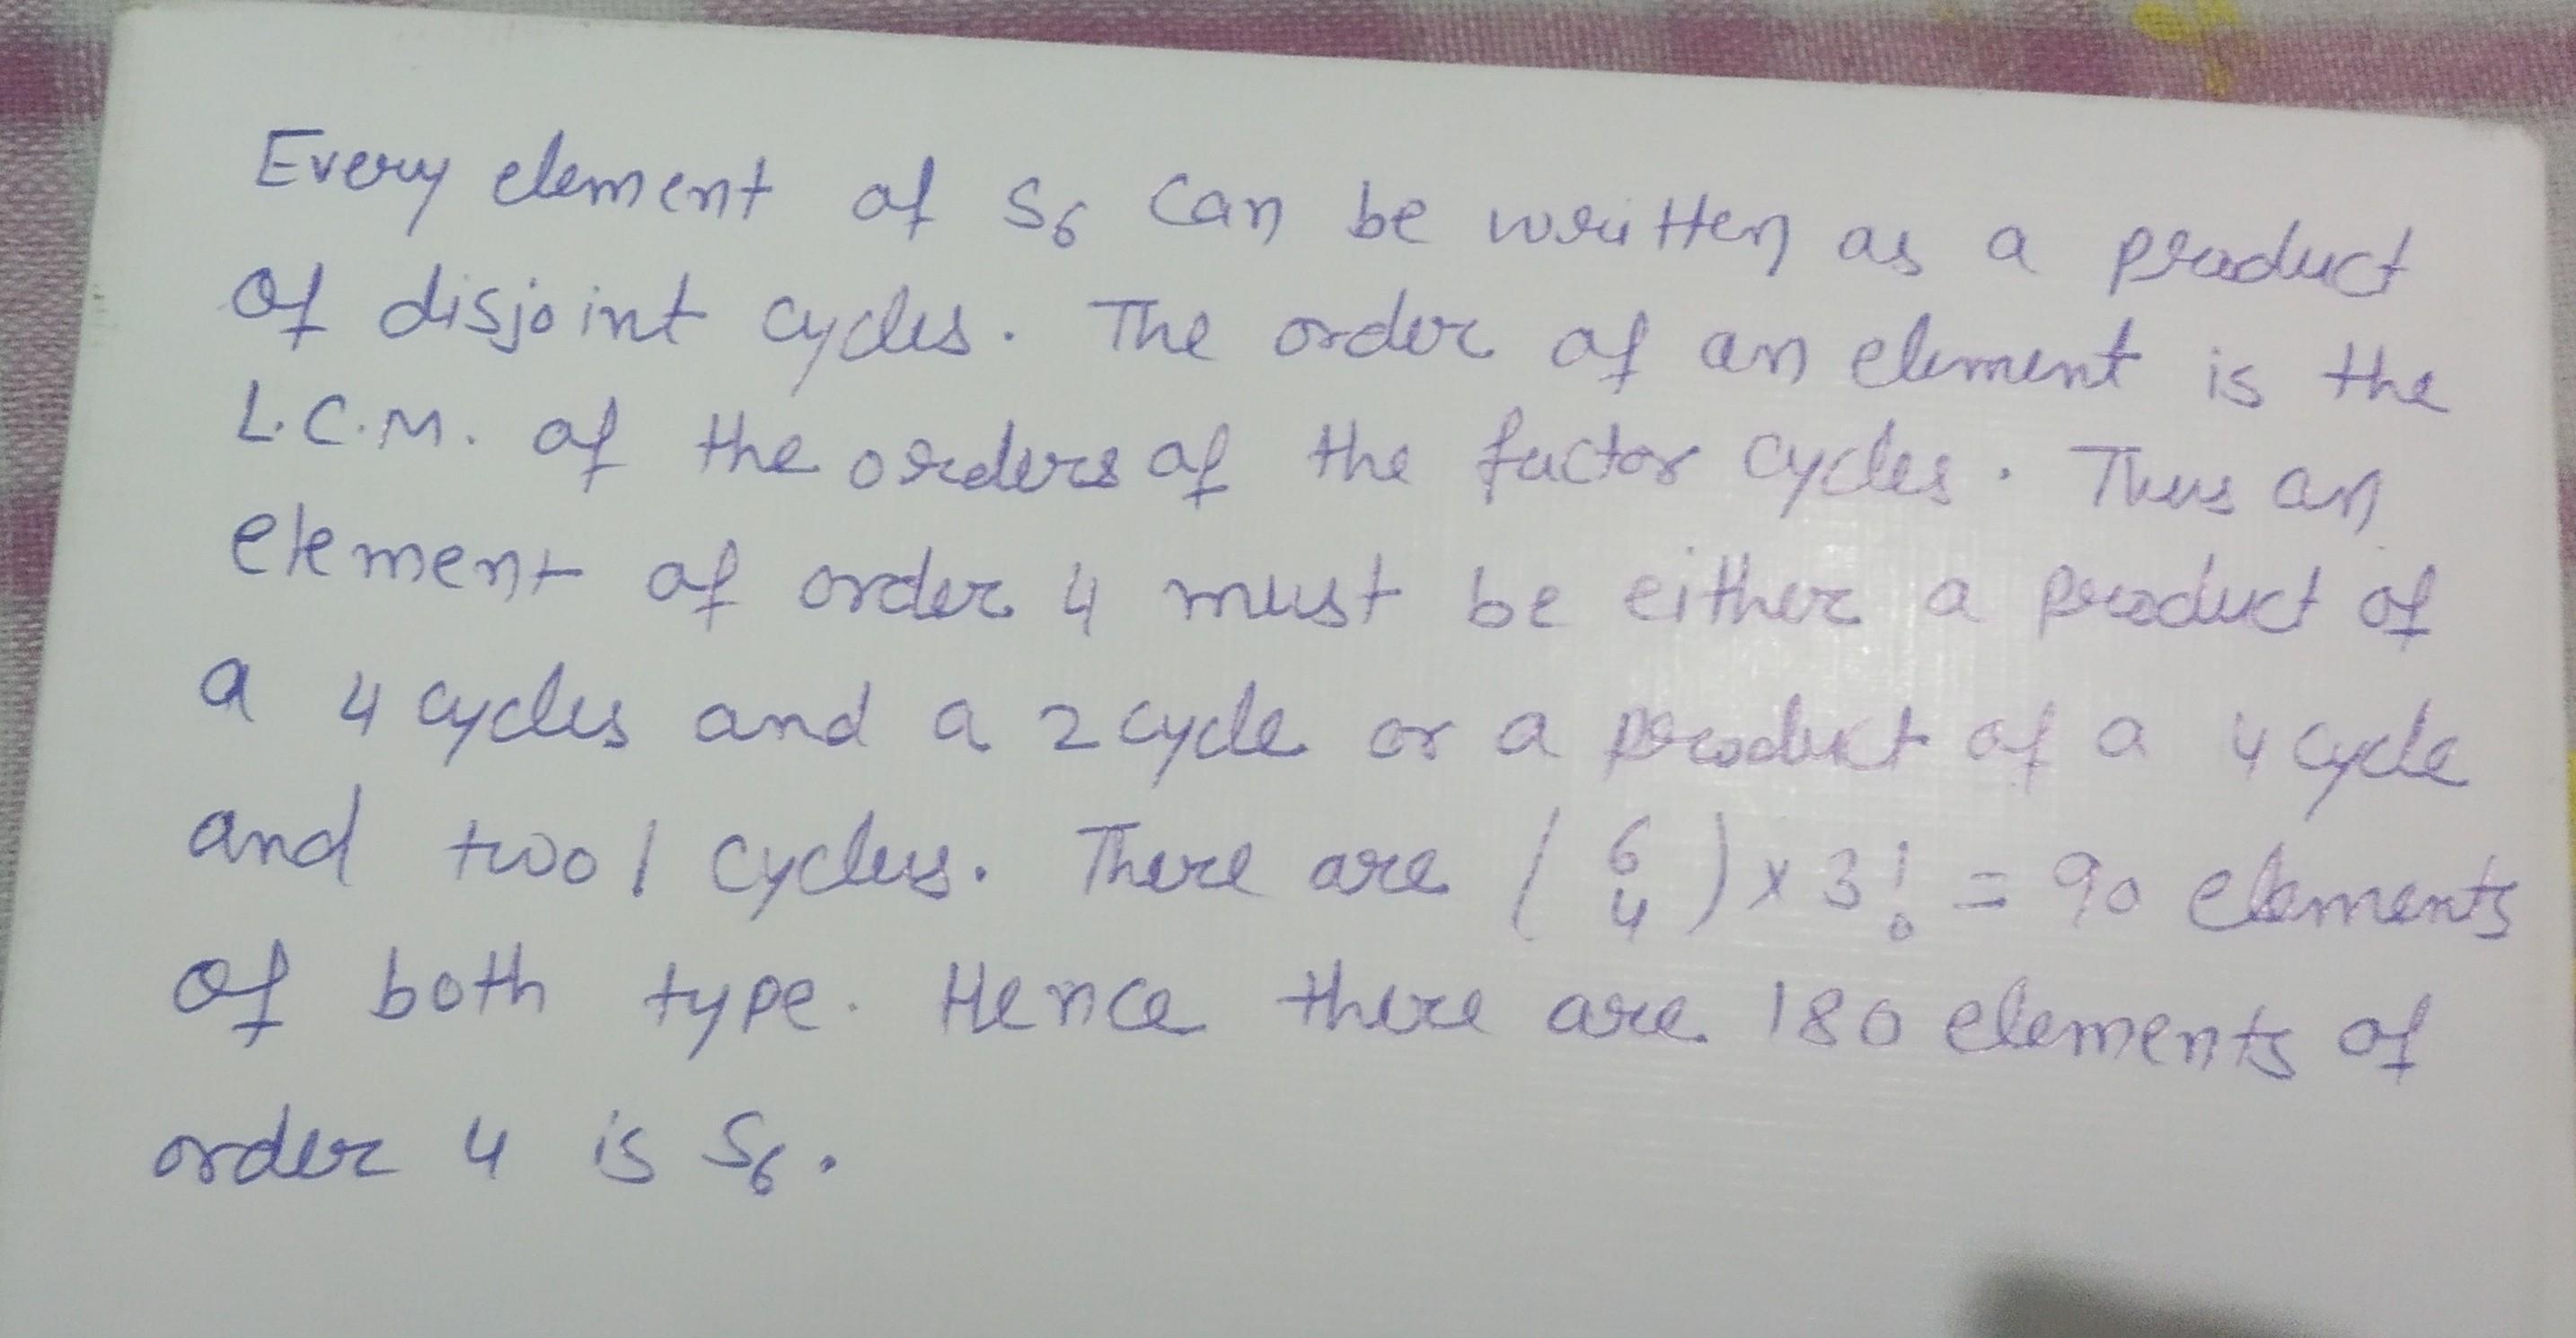 Every element of S6 can be written as a product
of disjoint cycles. The order of an element is the
L.C.M. of the orders of the factor cycles. Thus an
element of order 4 must be either a product of
a 4 cycles and a 2 cycle or a product of a 4 cycle
and two 1 cycles. There are (6 4) x 3! = 90 elements
of both type. Hence there are 180 elements of
order 4 is S6.